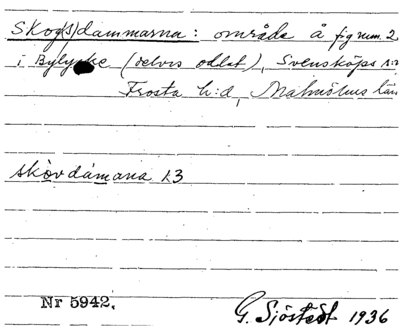 Skog(s)dammarna: område å fig num. 2
i Bylycke (delvis odlat), Svensköps s:n
Frosta h:d, Malmöhus län
skòvdámana 13
Nr 5942.
G. Sjöstedt 1936